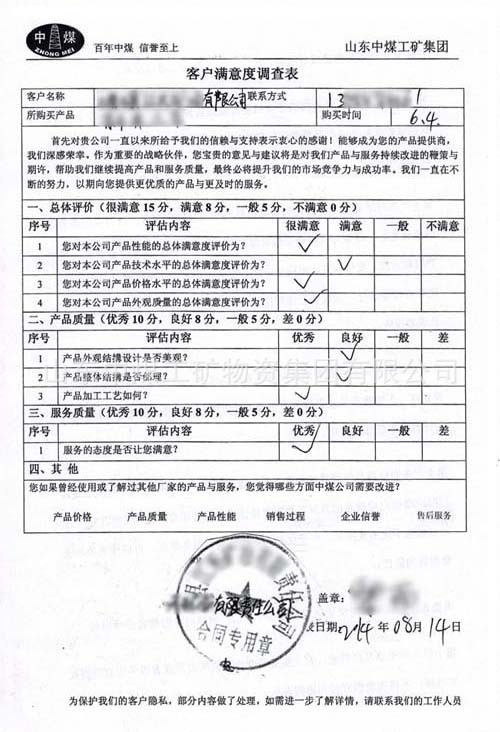 中 煤
ZHONG MEI
百年中煤 信誉至上
山东中煤工矿集团
客户满意度调查表
客户名称 有限公司 联系方式 13 1
所购买产品 购买时间 6.4.
首先对贵公司一直以来所给予我们的信赖与支持表示衷心的感谢！能够成为您的产品提供商，
我们深感荣幸。作为重要的战略伙伴，您宝贵的意见与建议将是对我们产品与服务持续改进的鞭策与
期许，帮助我们继续提高产品和服务质量，最终必将提升我们的市场竞争力与成功率。我们一直在不
断的努力，以期向您提供更优质的产品与更及时的服务。
一、总体评价（很满意 15 分，满意 8 分，一般 5 分，不满意 0 分）
序号 评估内容 很满意 满意 一般 不满意
1 您对本公司产品性能的总体满意度评价为？
2 您对本公司产品技术水平的总体满意度评价为？
3 您对本公司产品价格水平的总体满意度评价为？
4 您对本公司产品外观质量的总体满意度评价为？
二、产品质量（优秀 10 分，良好 8 分，一般 5 分，差 0 分）
序号 评估内容 优秀 良好 一般 差
1 产品外观结构设计是否美观？
2 产品整体结构是否合理？
3 产品加工工艺如何？
工矿物资集团有限公司
三、服务质量（优秀 10 分，良好 8 分，一般 5 分，差 0 分）
序号 评估内容 优秀 良好 一般 差
1 服务的态度是否让您满意？
四、其 他
您如果曾经使用或了解过其他厂家的产品与服务，您觉得哪些方面中煤公司需要改进？
产品价格 产品质量 产品性能 销售过程 企业信誉 售后服务
县 责任公司
有限责任公司
合同专用章
盖章：
日期：2014 年 08 月 14 日
为保护我们的客户隐私，部分内容做了处理，如需进一步了解详情，请联系我们的工作人员